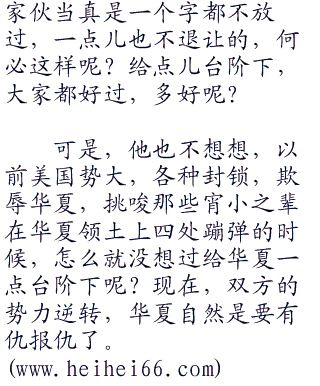 家伙当真是一个字都不放
过，一点儿也不退让的，何
必这样呢？给点儿台阶下，
大家都好过，多好呢？
可是，他也不想想，以
前美国势大，各种封锁，欺
辱华夏，挑唆那些宵小之辈
在华夏领土上四处蹦弹的时
候，怎么就没想过给华夏一
点台阶下呢？现在，双方的
势力逆转，华夏自然是要有
仇报仇了。
(www.heihei66.com)